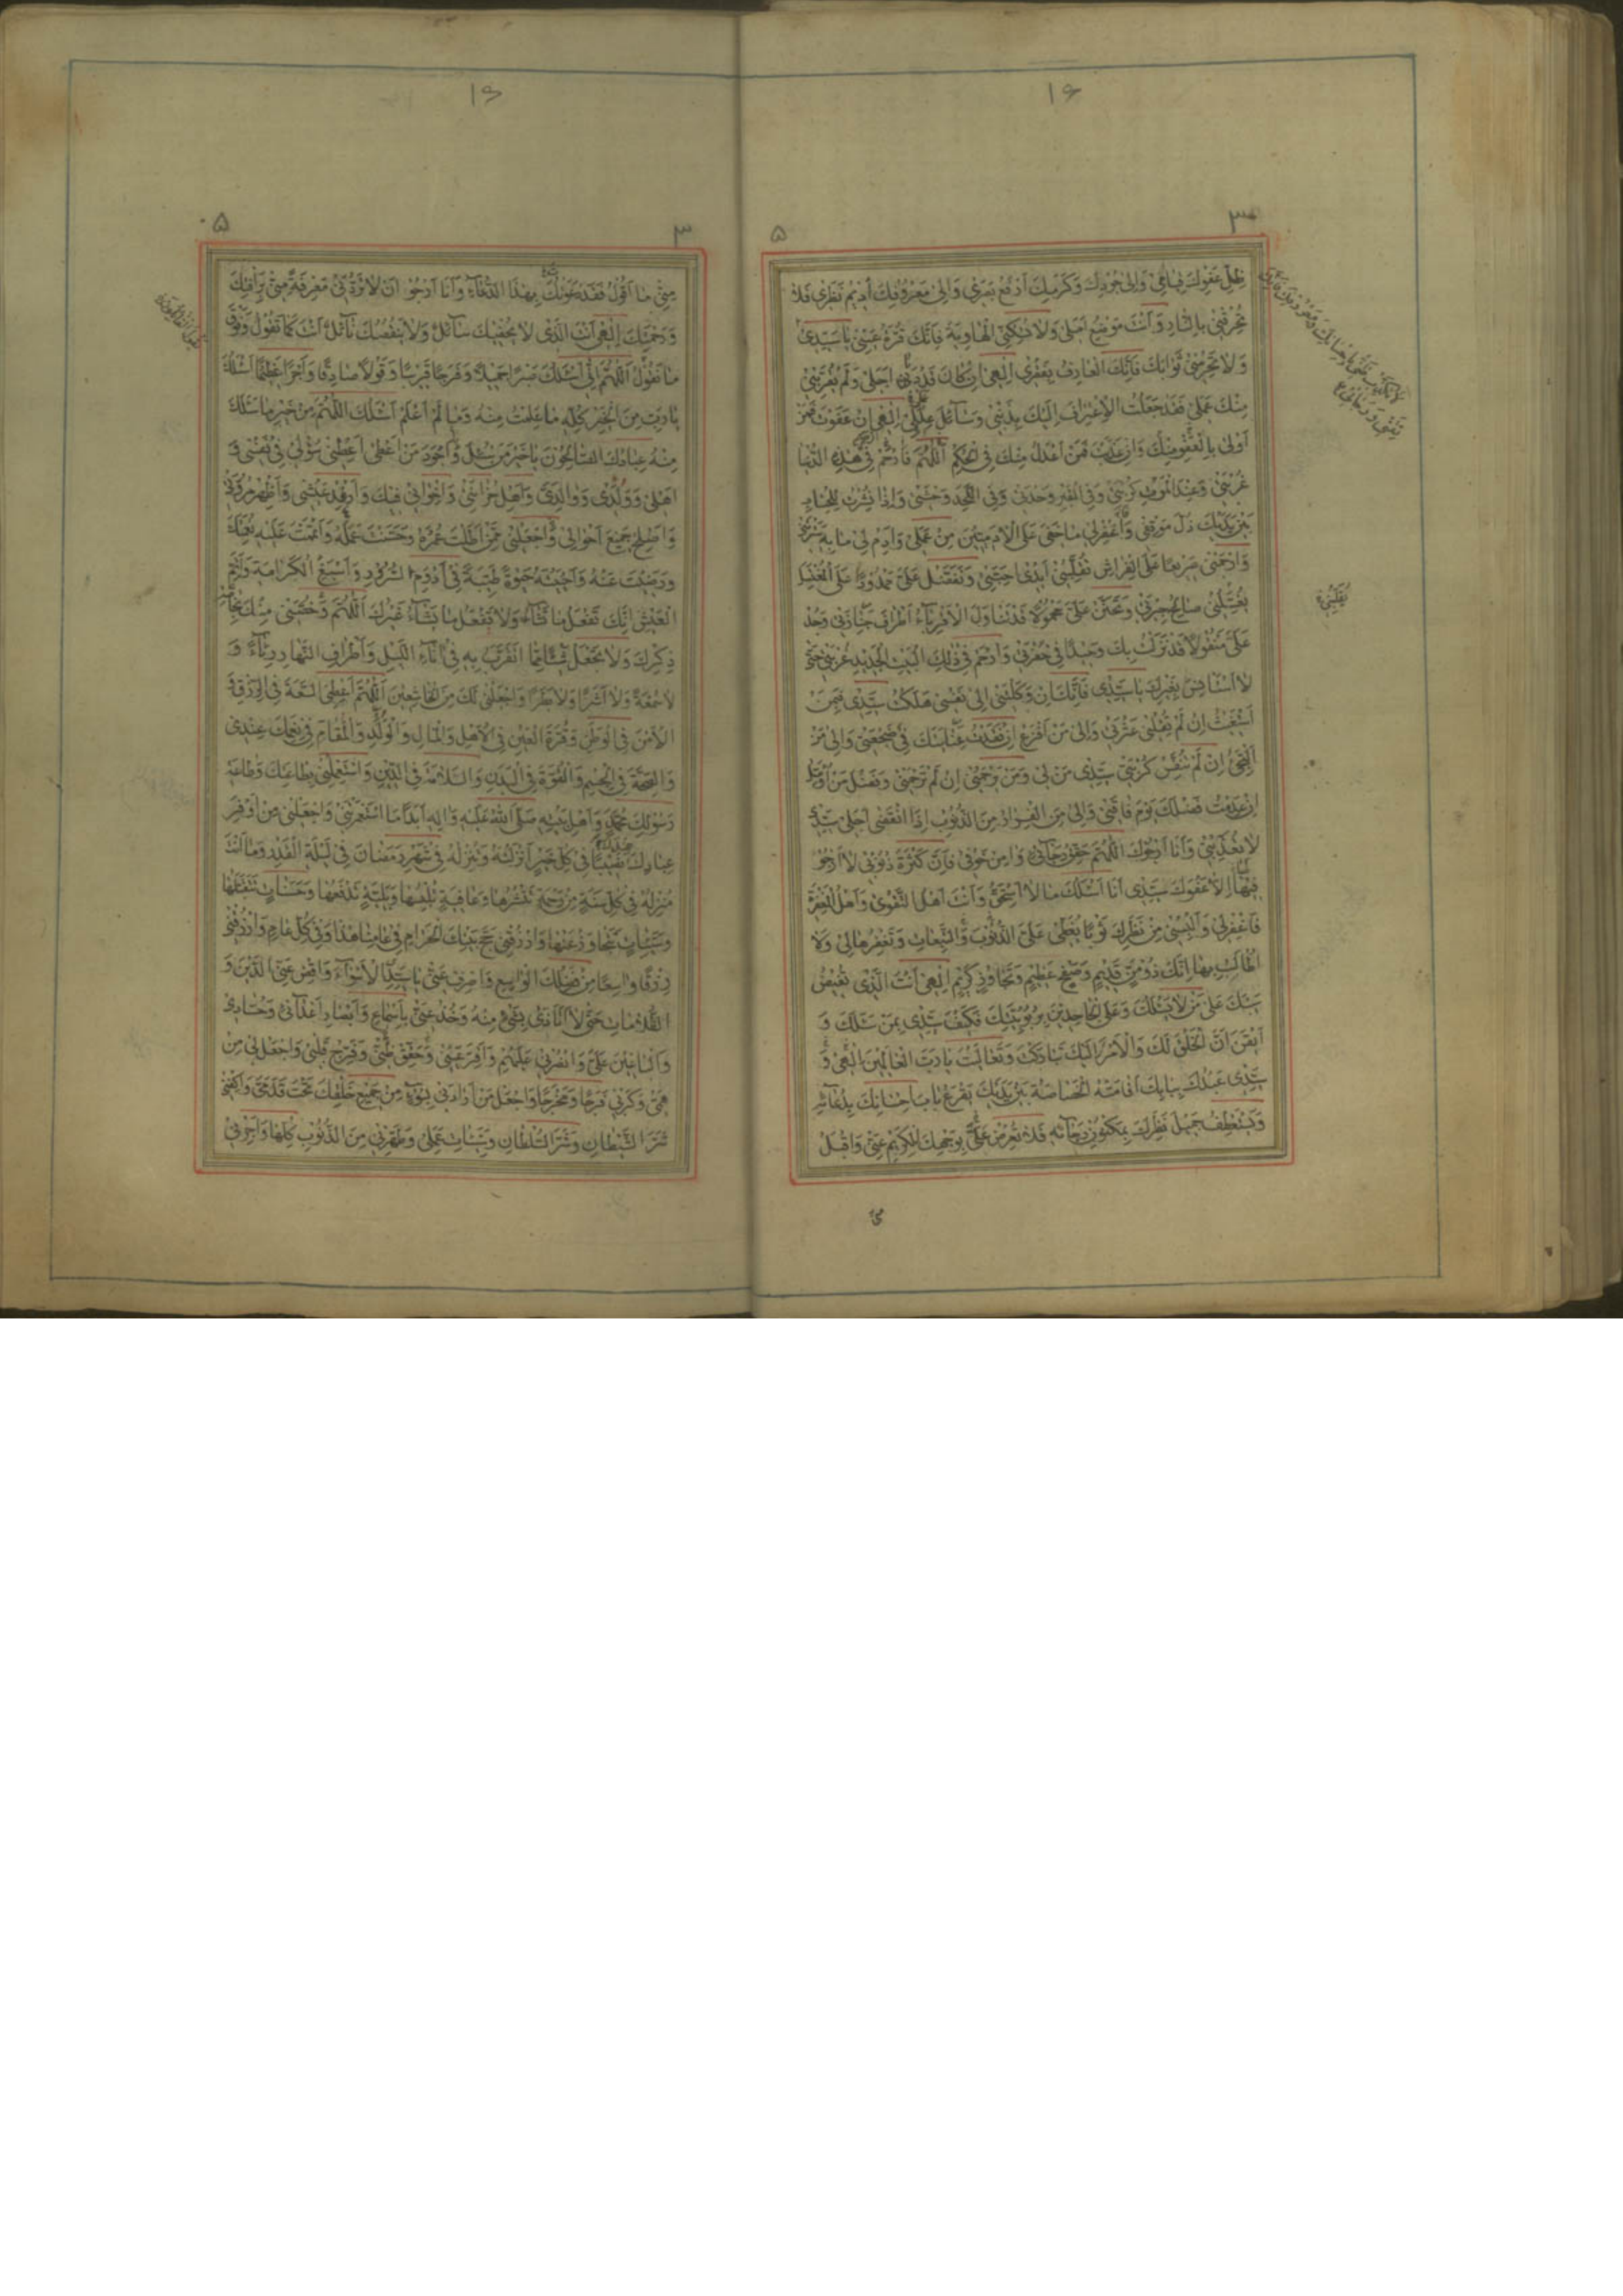 ١٦
٣ ٥
ظل عفوك قيامى والى جودك وكرمك ارفع بصرى والى معروفك اديم نظرى فلا
تحرقنى بالنار وانت موضع املى ولا تسكنى الهاوية فانك قرة عينى يا سيدى
ولا تحرمنى ثوابك فانك العارف بفقرى الهى ان كان قد دنى اجلى ولم يقربنى
منك عملى فقد جعلت الاعتراف اليك بذنبى وسائل عللى الهى ان عفوت فمن
اولى بالعفو منك وان عذبت فمن اعدل منك فى الحكم اللهم فارحم فى هذه الدنيا
غربتى وعند الموت كربتى وفى القبر وحدتى وفى اللحد وحشتى واذا نشرت للحساب
بين يديك ذل موقفى واغفر لى ما خفى على الادميين من عملى وادم لى ما به سترتنى
وارحمنى صريعا على الفراش تقلبنى ايدى احبتى وتفضل على ممدودا على المغتسل
يغسلنى صالح جيرتى وتحنن على محمولا قد تناول الاقرباء اطراف جنازتى وجد
على منقولا قد نزلت بك وحيدا فى حفرتى وارحم فى ذلك البيت الجديد غربتى حتى
لا استانس بغيرك يا سيدى فانك ان وكلتنى الى نفسى هلكت سيدى فبمن
استغيث ان لم تقلنى عثرتى والى من افزع ان فقدت عنايتك فى ضجعتى والى من
التجئ ان لم تنفس كربتى سيدى من لى ومن يرحمنى ان لم ترحمنى وفضل من اؤمل
ان عدمت فضلك يوم فاقتى والى من الفرار من الذنوب اذا انقضى اجلى سيدى
لا تعذبنى وانا ارجوك اللهم حقق رجائى وامن خوفى فان كثرة ذنوبى لا ارجو
فيها الا عفوك سيدى انا اسئلك ما لا استحق وانت اهل التقوى واهل المغفرة
فاغفر لى والبسنى من نظرك ثوبا يغطى على الذنوب والتبعات وتغفرها لى ولا
اطالب بها انك ذو من قديم وصفح عظيم وتجاوز كريم الهى انت الذى تفيض
سيبك على من لا يسئلك وعلى الجاحدين بربوبيتك فكيف سيدى بمن سئلك و
ايقن ان الخلق لك والامر اليك تباركت وتعاليت يا رب العالمين الهى و
سيدى عبدك ببابك اقامته الخصاصة بين يديك يقرع باب احسانك بدعائه
ويستعطف جميل نظرك بمكنون رجائه فلا تعرض على بوجهك الكريم عنى واقبل
منى
يقلبنى
١٦
٣ ٥
منى ما اقول فقد دعوتك بهذا الدعاء وانا ارجو ان لا تردنى معرفة منى برأفتك
ورحمتك الهى انت الذى لا يحفيك سائل ولا ينقصك نائل انت كما تقول وفوق
ما نقول اللهم انى اسئلك صبرا جميلا وفرجا قريبا وقولا صادقا واجرا عظيما اسئلك
يا رب من الخير كله ما علمت منه وما لم اعلم اسئلك اللهم من خير ما سئلك
منه عبادك الصالحون يا خير من سئل واجود من اعطى اعطنى سؤلى فى نفسى و
اهلى وولدى ووالدى واهل حزانتى واخوانى فيك وارغد عيشى واظهر مروتى
واصلح جميع احوالى واجعلنى ممن اطلت عمره وحسنت عمله واتممت عليه نعمتك
ورضيت عنه واحييته حيوة طيبة فى ادوم السرور واسبغ الكرامة واتم
العيش انك تفعل ما تشاء ولا يفعل ما يشاء غيرك اللهم وخصنى منك بخاصة
ذكرك ولا تجعل شيئا مما اتقرب به فى اناء الليل واطراف النهار رياء و
لا سمعة ولا اشرا ولا بطرا واجعلنى لك من الخاشعين اللهم اعطنى السعة فى الرزق و
الامن فى الوطن وقرة العين فى الاهل والمال والولد والمقام فى نعمك عندى
والصحة فى الجسم والقوة فى البدن والسلامة فى الدين واستعملنى بطاعتك وطاعة
رسولك محمد واهل بيته صلى الله عليه واله ابدا ما استعمرتنى واجعلنى من اوفر
عبادك نصيبا فى كل خير انزلته وتنزله فى شهر رمضان فى ليلة القدر وما انت
منزله فى كل سنة من رحمة تنشرها وعافية تلبسها وبلية تدفعها وحسنات تتقبلها
وسيئات تتجاوز عنها وارزقنى حج بيتك الحرام فى عامنا هذا وفى كل عام وارزقنى
رزقا واسعا من فضلك الواسع واصرف عنى يا سيدى الاسواء واقض عنى الدين و
الظلامات حتى لا اتاذى بشىء منه وخذ عنى باسماع وابصار اعدائى وحسادى
والباغين على وانصرنى عليهم واقر عينى وحقق ظنى وفرح قلبى واجعل لى من
همى وكربى فرجا ومخرجا واجعل من ارادنى بسوء من جميع خلقك تحت قدمى واكفنى
شر الشيطان وشر السلطان وسيئات عملى وطهرنى من الذنوب كلها واجرنى